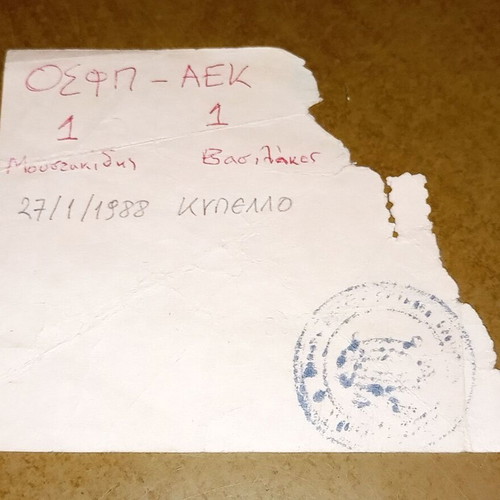 ΟΣΦΠ - ΑΕΚ
1 1
Μουστακίδης Βασιλάκος
27/1/1988 ΚΥΠΕΛΛΟ